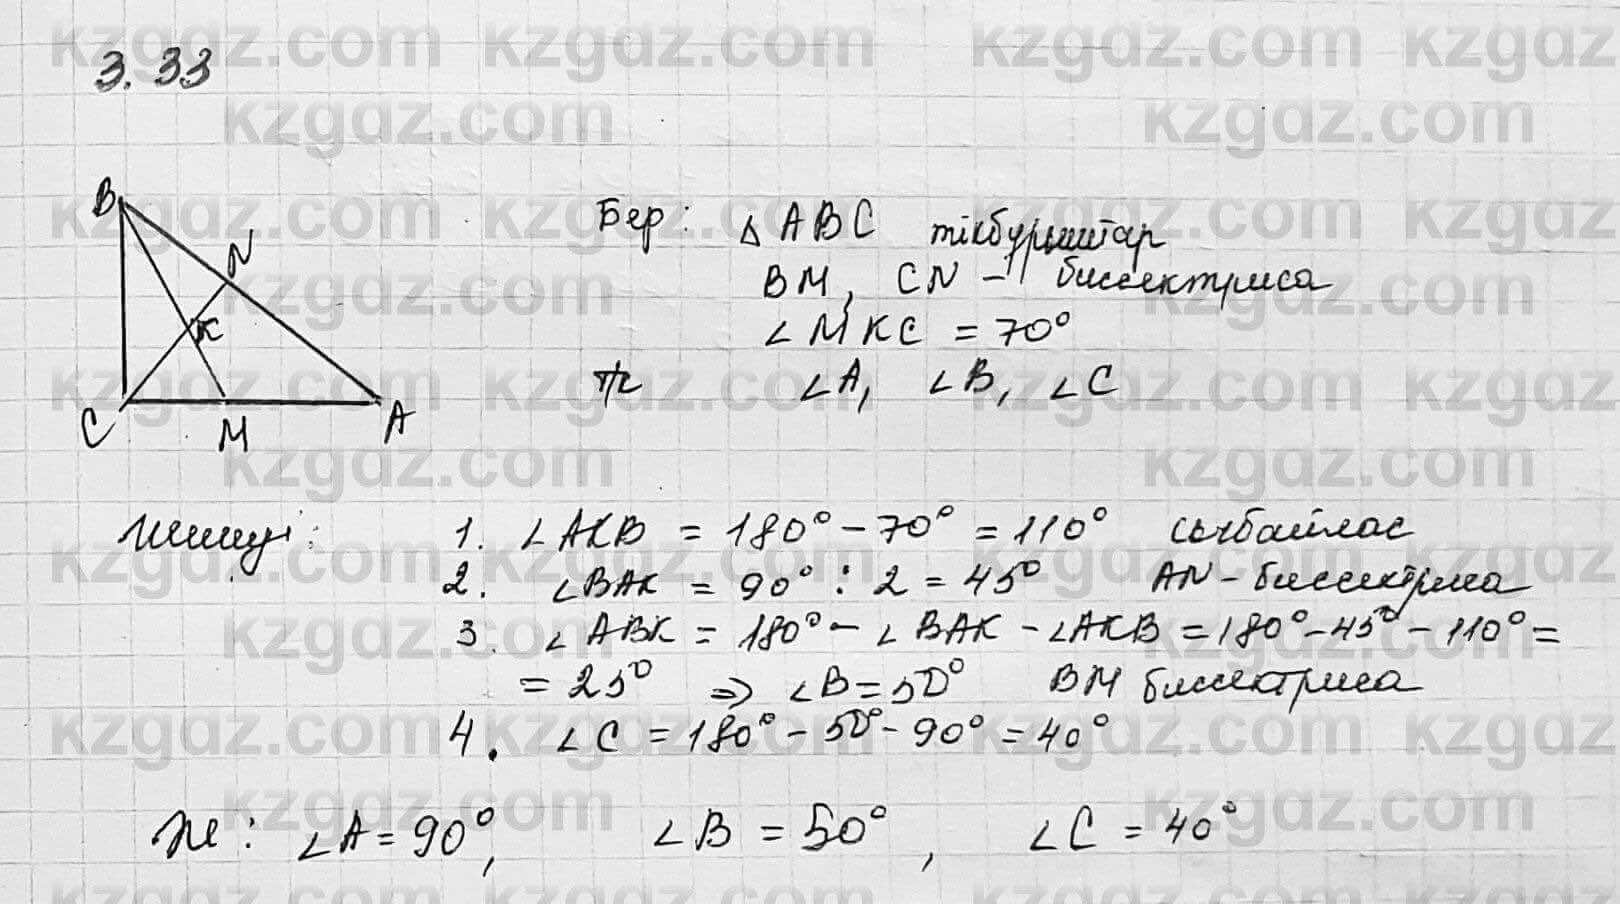 3.33
B
N
K
C
M
A
Бер: △ ABC тікбұрыштар
BM, CN - биссектриса
∠MKC = 70°
т/к ∠A, ∠B, ∠C
Шешуі: 1. ∠AKB = 180° - 70° = 110° сыбайлас
2. ∠BAK = 90° : 2 = 45° AN - биссектриса
3. ∠ABK = 180° - ∠BAK - ∠AKB = 180° - 45° - 110° =
= 25° ⇒ ∠B = 50° BM биссектриса
4. ∠C = 180° - 50° - 90° = 40°
Ж: ∠A = 90°, ∠B = 50°, ∠C = 40°